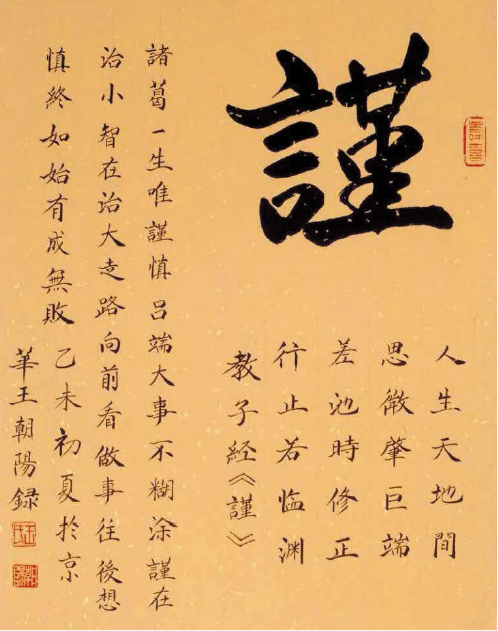 謹
人生天地間
思微肇巨端
差池時修正
行止若临渊
教子经《謹》
諸葛一生唯謹慎吕端大事不糊涂謹在
治小智在治大走路向前看做事往後想
慎終如始有成無敗 乙未初夏於京
華王朝陽録